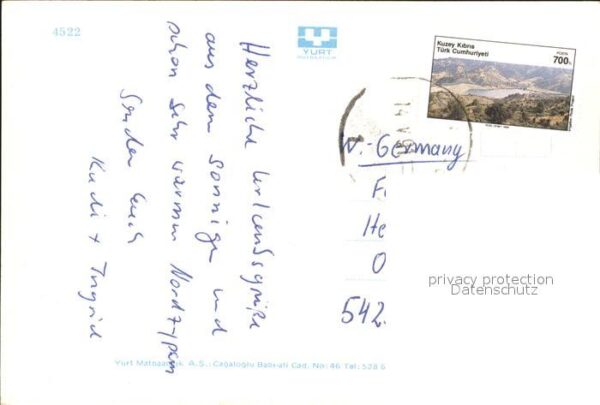 4522
YURT
Herzliche Urlaubsgrüße
aus dem sonnigen und
schon sehr warmen Nordzypern
senden Euch
Rudi + Ingrid
Kuzey Kıbrıs
Türk Cumhuriyeti
700
W.-Germany
F.
He
O
542
privacy protection
Datenschutz
Yurt Matbaacılık, A.S., Cağaloğlu Babıali Cad. No: 46 Tel: 528 6